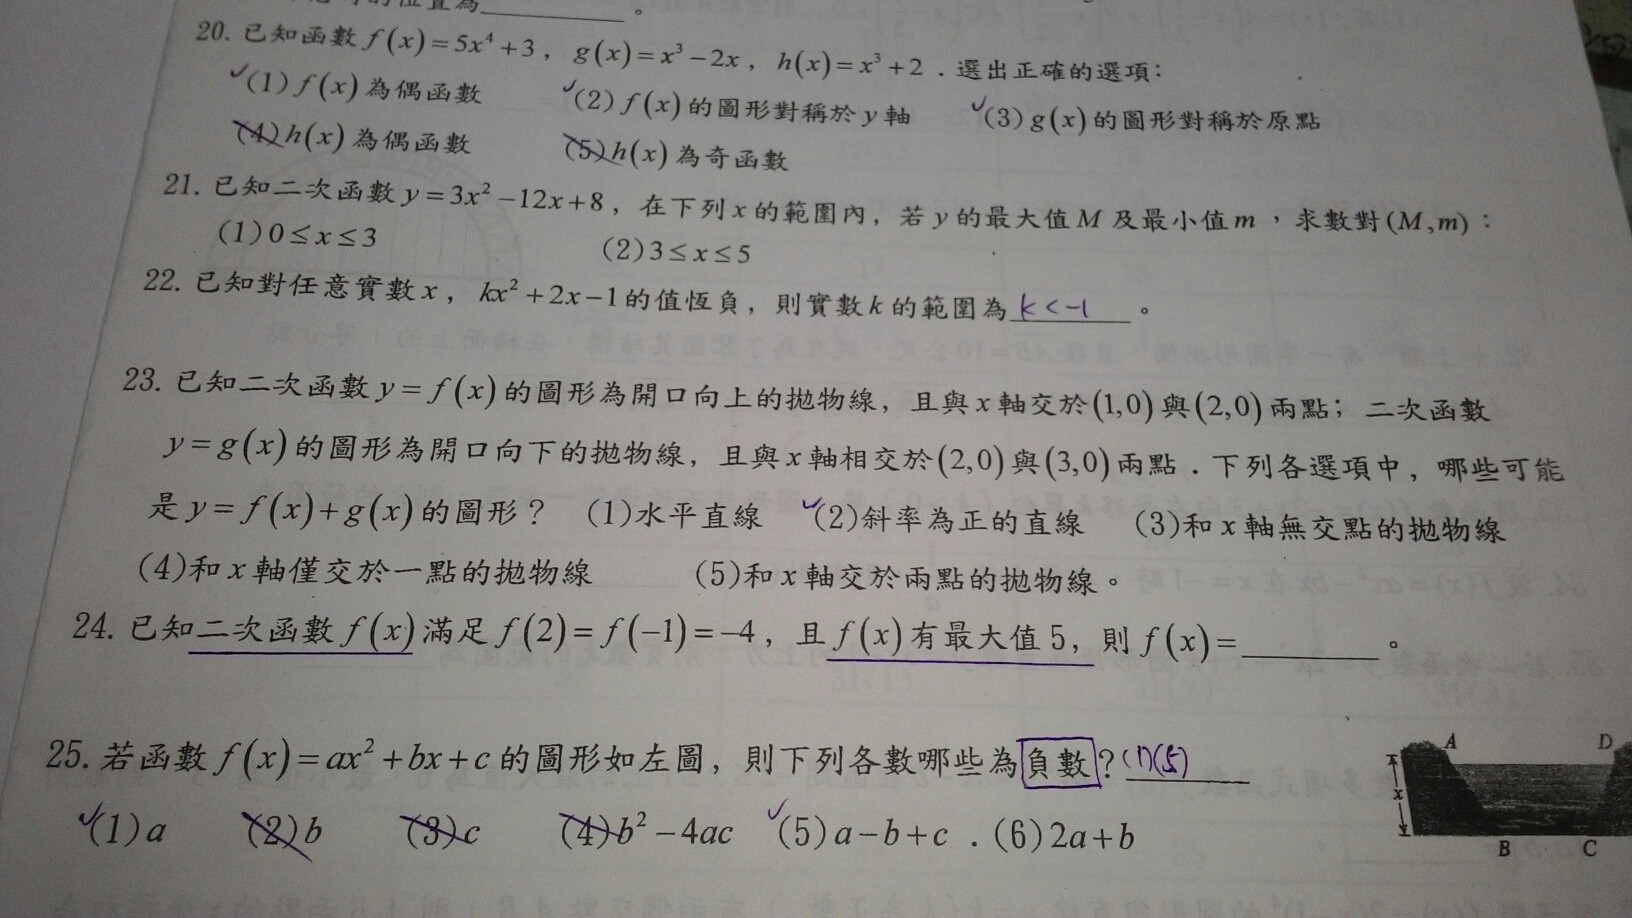 的位置為________。
20. 已知函數 f(x)=5x⁴+3，g(x)=x³−2x，h(x)=x³+2．選出正確的選項：
✓(1) f(x)為偶函數 ✓(2) f(x)的圖形對稱於 y 軸 ✓(3) g(x)的圖形對稱於原點
(4) h(x)為偶函數 (5) h(x)為奇函數
21. 已知二次函數 y=3x²−12x+8，在下列 x 的範圍內，若 y 的最大值 M 及最小值 m，求數對(M,m)：
(1) 0≤x≤3 (2) 3≤x≤5
22. 已知對任意實數 x，kx²+2x−1的值恆負，則實數 k 的範圍為 k<-1 。
23. 已知二次函數 y=f(x)的圖形為開口向上的拋物線，且與 x 軸交於(1,0)與(2,0)兩點；二次函數
y=g(x)的圖形為開口向下的拋物線，且與 x 軸相交於(2,0)與(3,0)兩點．下列各選項中，哪些可能
是 y=f(x)+g(x)的圖形？ (1)水平直線 ✓(2)斜率為正的直線 (3)和 x 軸無交點的拋物線
(4)和 x 軸僅交於一點的拋物線 (5)和 x 軸交於兩點的拋物線。
24. 已知二次函數 f(x)滿足 f(2)=f(−1)=−4，且 f(x)有最大值 5，則 f(x)=________。
25. 若函數 f(x)=ax²+bx+c 的圖形如左圖，則下列各數哪些為負數？(1)(5)
✓(1) a (2) b (3) c (4) b²−4ac ✓(5) a−b+c．(6) 2a+b
A D
x
B C